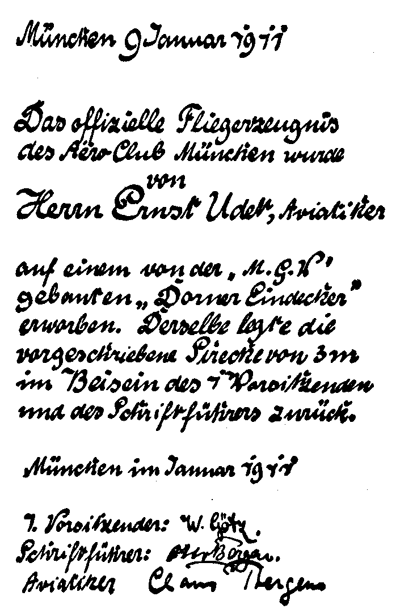 München 9 Januar 1911
Das offizielle Fliegerzeugnis
des Aëro-Club München wurde
von
Herrn Ernst Udet, Aviatiker
auf einem von der „M.G.V"
gebauten „Dorner Eindecker"
erworben. Derselbe legte die
vorgeschriebene Strecke von 3m
im Beisein des 1 Vorsitzenden
und des Schriftführers zurück.
München im Januar 1911
1. Vorsitzender: W. Götz.
Schriftführer: Otto
Aviatiker